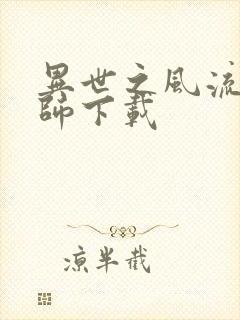 異世之風流
師下載
涼半截